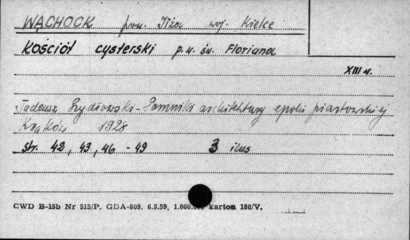 WĄCHOCK pow. Iłża woj. Kielce
KOŚCIÓŁ cysterski p.w. św. Floriana
XIII w.
Tadeusz Szydłowski - Pomniki architektury epoki piastowskiej
Kraków 1928
str. 42, 43, 46 - 49 3 ilus
CWD B-15b Nr 515/P. GDA-809. 6.3.59. 1.000.000 karton 180/V.